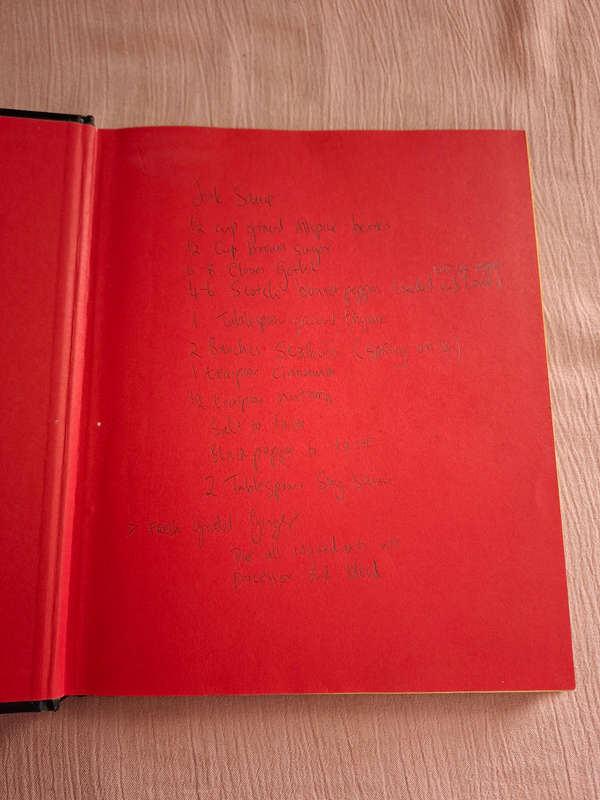 Jerk Sauce
1/2 cup ground Allspice berries
1/2 Cup brown sugar
6-8 Cloves Garlic
4-6 Scotch bonnet pepper (seeded and cored)
1 Tablespoon ground thyme
2 Bunches Scallions (spring onions)
1 teaspoon Cinnamon
1/2 teaspoon nutmeg
Salt to taste
Black pepper to taste
2 Tablespoon Soy Sauce
> Fresh grated Ginger
Put all ingredients in
Processor and blend